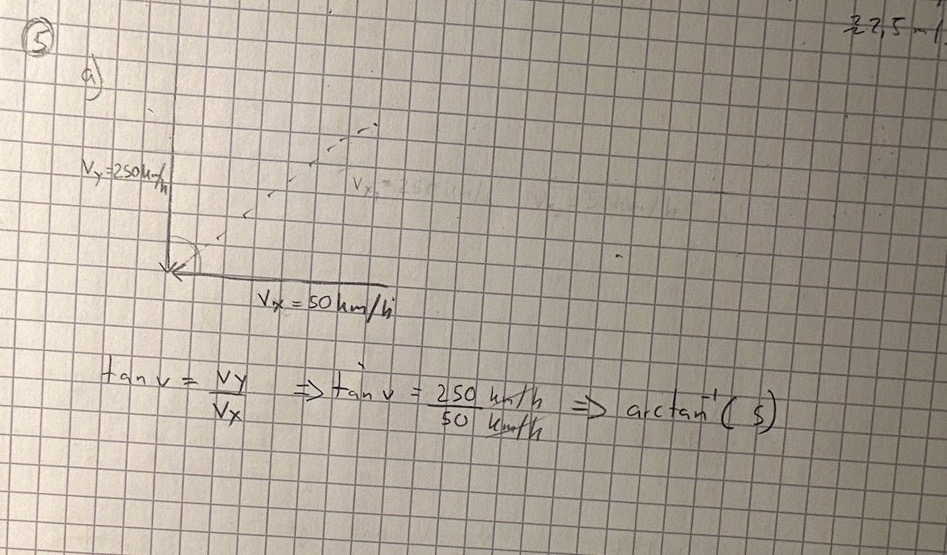 22,5 m/
5
a)
Vy = 250 km/h
Vx = 50 km/h
tan v = Vy/Vx => tan v = 250 km/h / 50 km/h => arctan⁻¹(5)